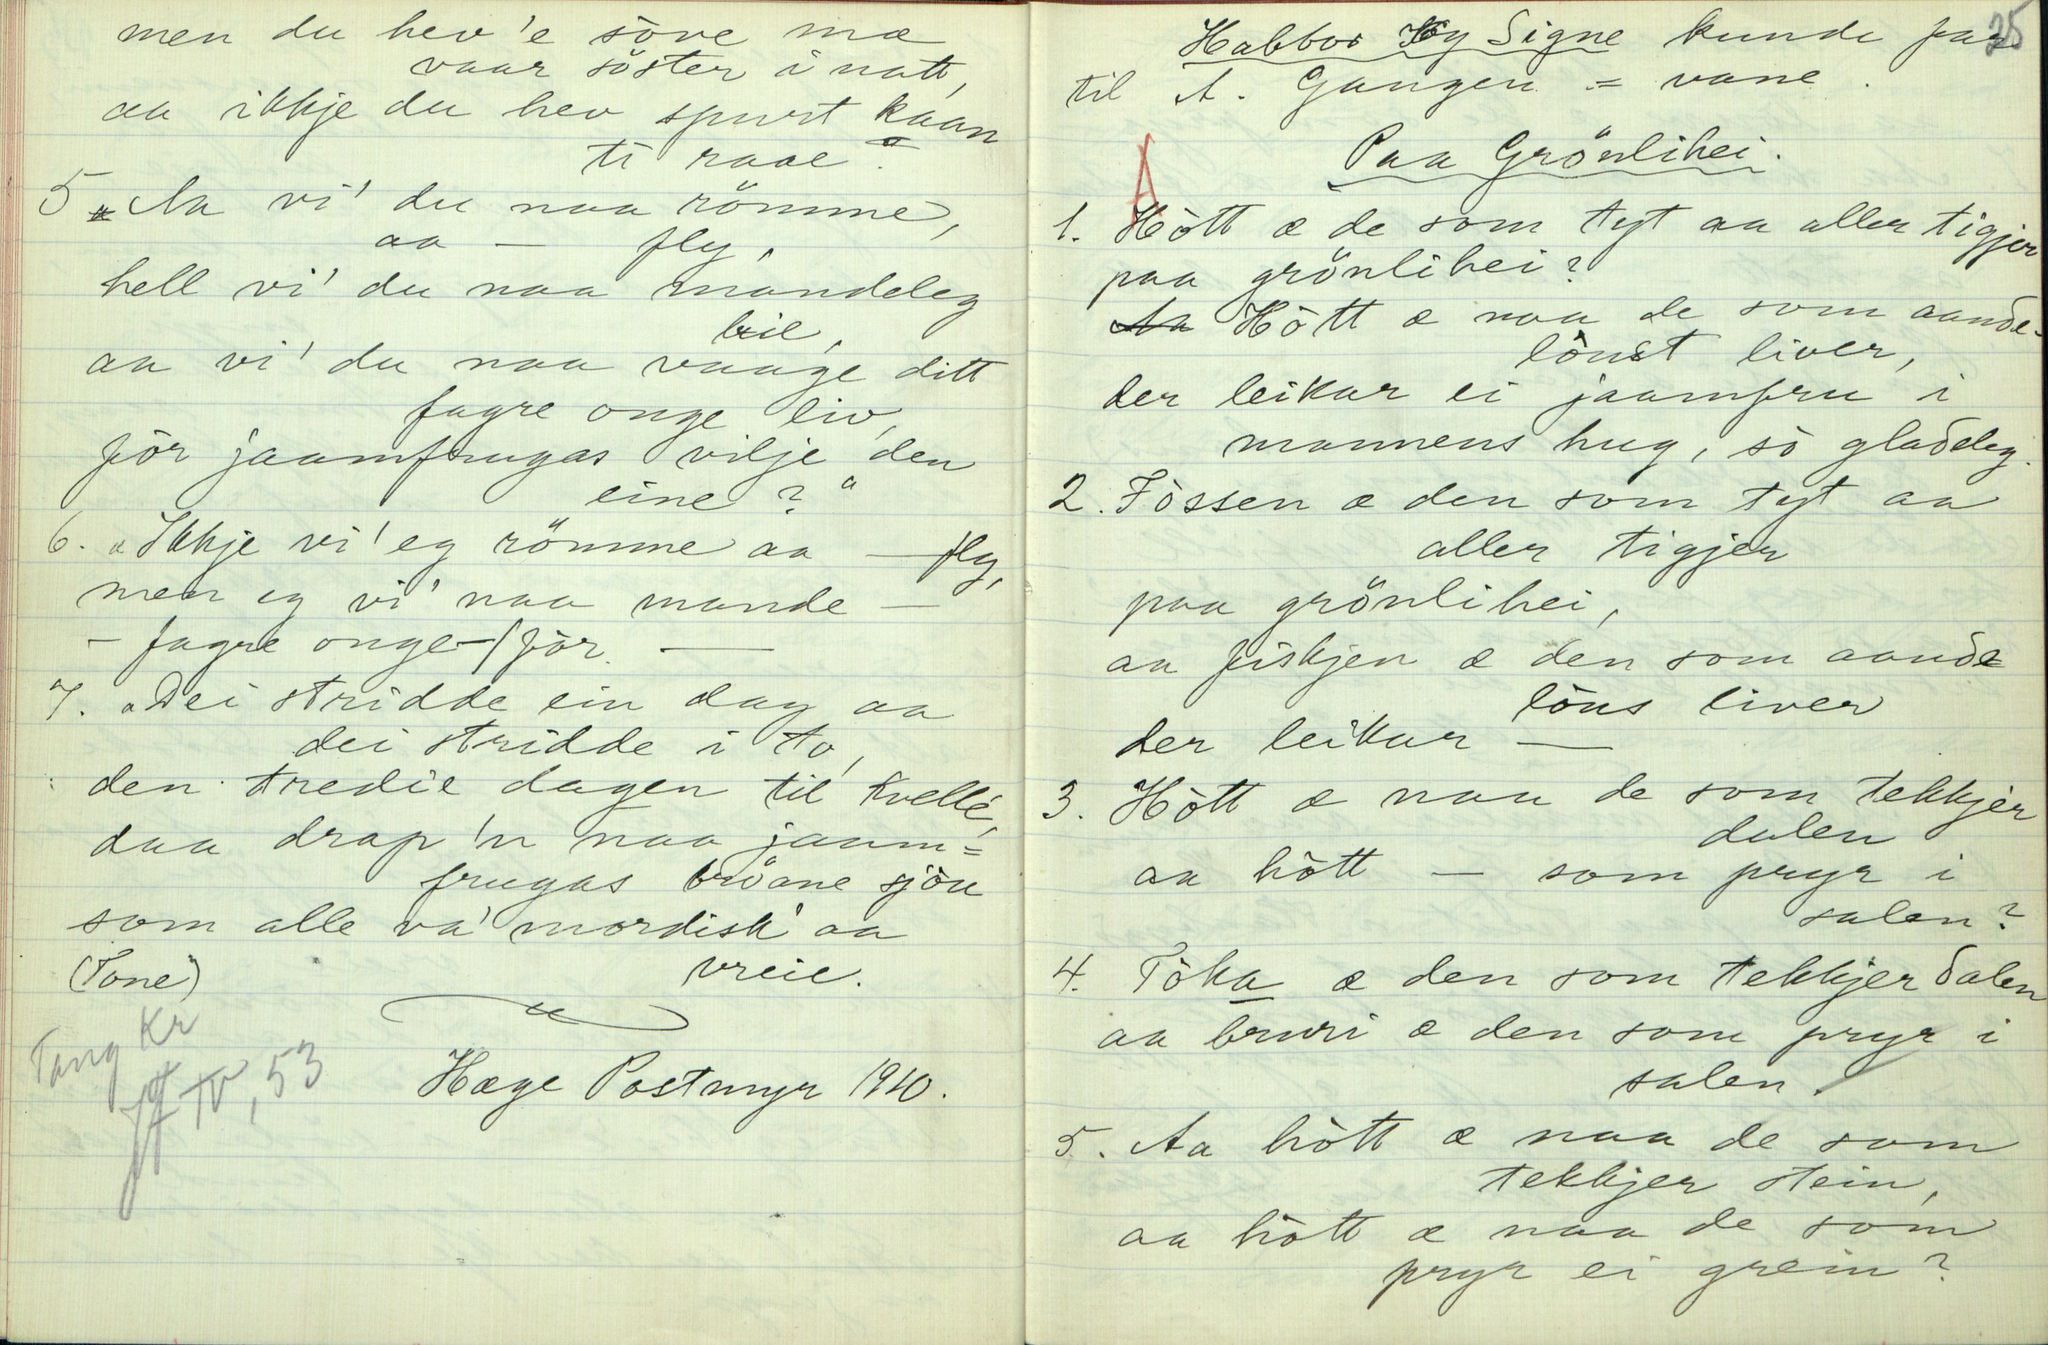 men du hev 'e söve mæ
vaar söster i natt,
aa ikkje du hev spurt kaan
ti raae".
5 „Aa vi' du naa römme,
aa — fly,
hell vi' du naa mandeleg
bie,
aa vi' du naa vaage ditt
fagre onge liv,
før jaamfrugas vilje den
eine?"
6. „Ikkje vi' eg römme aa — fly,
men eg vi' naa mande —
— fagre onge — / før. —
7. „Dei stridde ein dag aa
dei stridde i to,
den tredie dagen til kvelle,
daa drap 'n naa jaam=
frugas bröane sjöu
som alle va' mordisk' aa
vreie.
(Tone)
Tang Kr
Jf IV, 53
Hæge Postmyr 1910.
25
Habbor og Signe kunde faa
til A. Gangen = vane.
Paa Grönlihei.
A
1. Hòtt æ de som tyt aa aller tigjer
paa grönlihei?
Aa Hòtt æ naa de som aande-
lönst liver,
der leikar ei jaamfru i
mannens hug, so gladeleg.
2. Fòssen æ den som tyt aa
aller tigjer
paa grönlihei,
aa fiskjen æ den som aande
löns liver
der leikar —
3. Hòtt æ naa de som tekkjer
dalen
aa hòtt — som pryr i
salen?
4. Töka æ den som tekkjer dalen
aa bruri æ den som pryr i
salen.
5. Aa hòtt æ naa de som
tekkjer stein,
aa hòtt æ naa de som
pryr ei grein?